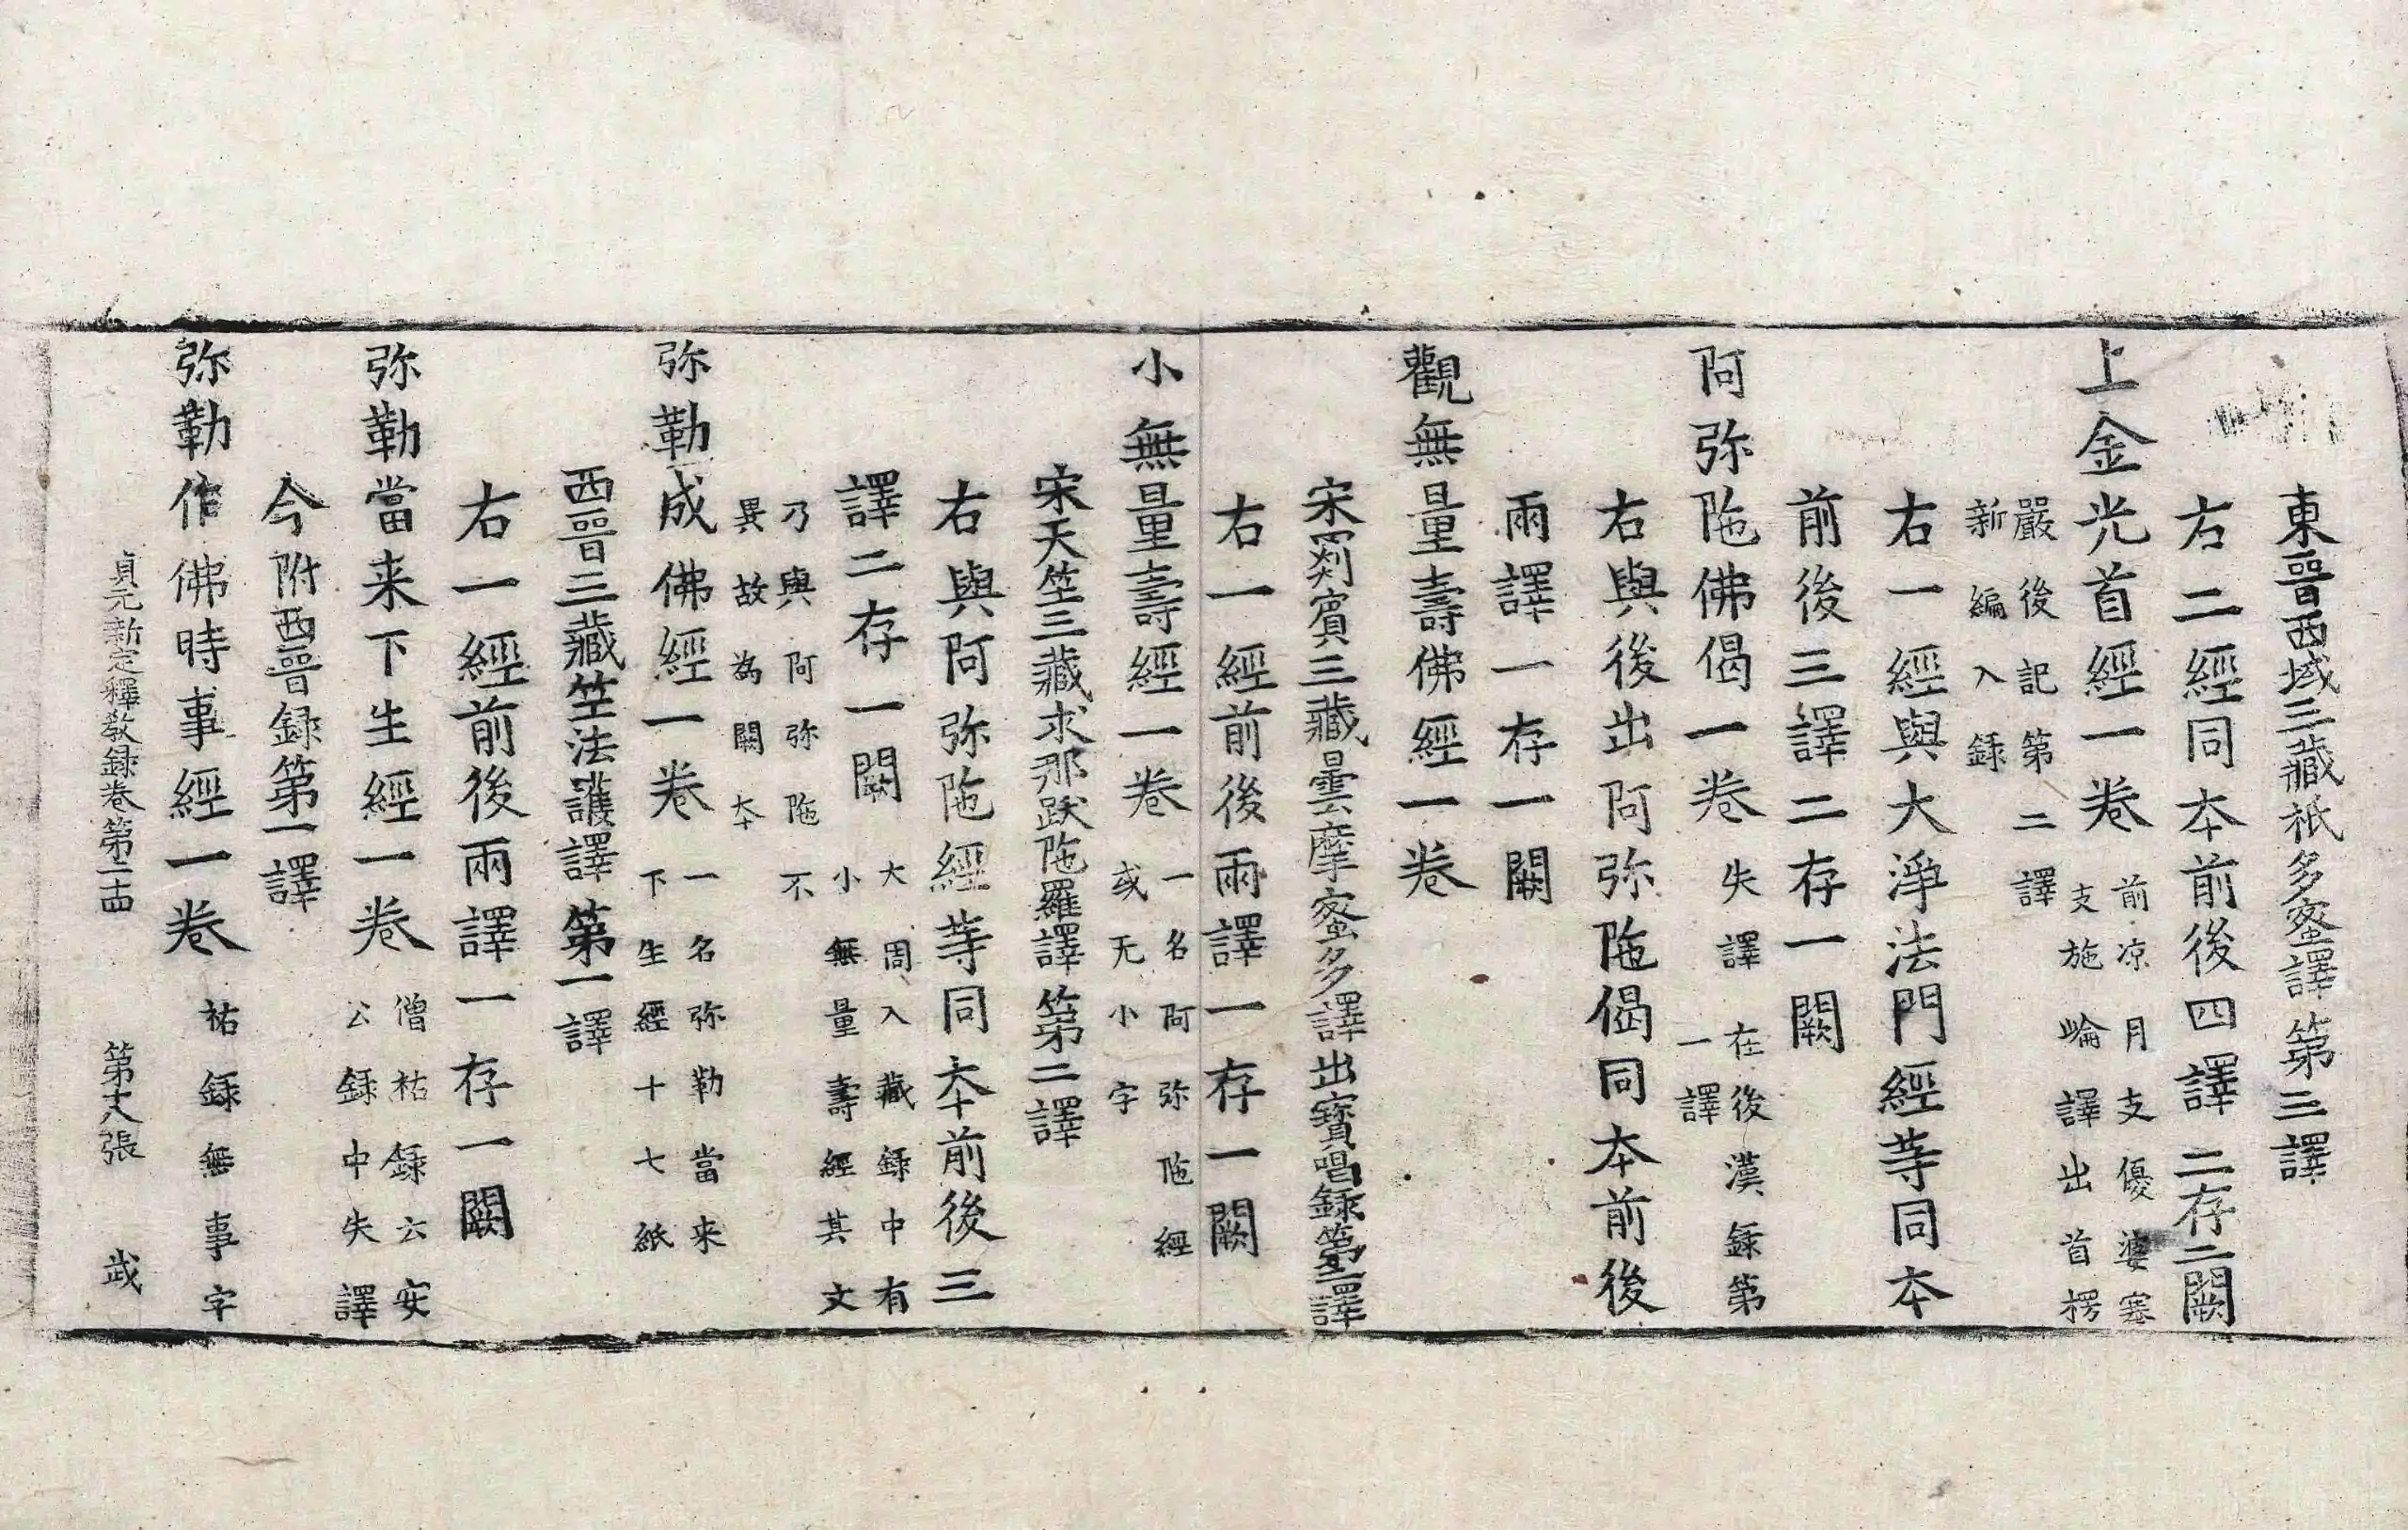 東晉西域三藏祇多蜜譯第三譯
右二經同夲前後四譯二存二闕
上金光首經一卷前凉月支優婆塞
支施崘譯出首楞
嚴後記第二譯
新編入録
右一經與大淨法門經等同夲
前後三譯二存一闕
阿弥陁佛偈一卷失譯在後漢録第
一譯
右與後出阿弥陁偈同夲前後
兩譯一存一闕
觀無量壽佛經一卷
宋罽賓三藏曇摩蜜多譯出寶唱録第二譯
右一經前後兩譯一存一闕
小無量壽經一卷一名阿弥陁經
或无小字
宋天竺三藏求那跋陁羅譯第二譯
右與阿弥陁經等同夲前後三
譯二存一闕大周入藏録中有
小無量壽經其文
乃與阿弥陁不
異故為闕夲
弥勒成佛經一卷一名弥勒當来
下生經十七紙
西晉三藏竺法護譯第一譯
右一經前後兩譯一存一闕
弥勒當来下生經一卷僧祐録云安
公録中失譯
今附西晉録第一譯
弥勒作佛時事經一卷祐録無事字
貞元新定釋教録卷第二十四 第十八張 武